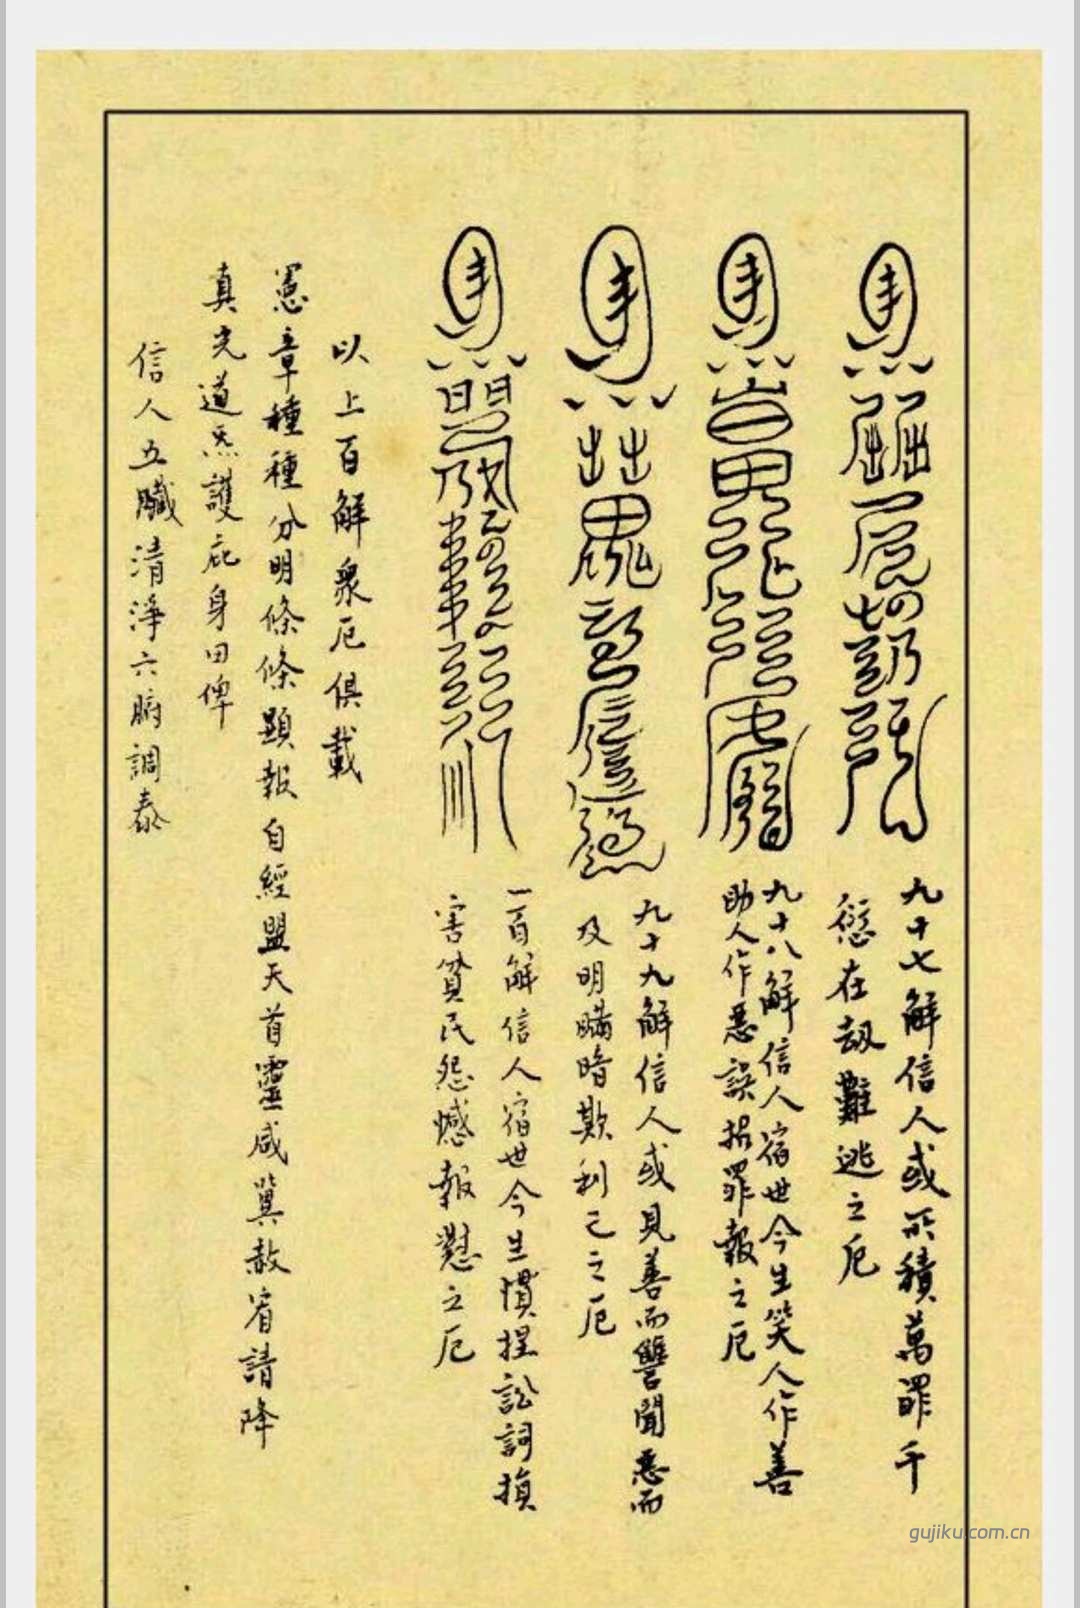 九十七解信人或所積萬罪千
愆在劫難逃之厄
九十八解信人宿世今生笑人作善
助人作惡誤招罪報之厄
九十九解信人或見善而讐聞惡而
及明瞞暗欺利己之厄
一百解信人宿世今生慣捏訟詞損
害貧民怨憾報懟之厄
以上百解衆厄俱載
憲章種種分明條條顯報自經盟天首靈咸冀赦宥請降
真光道炁護庇身田俾
信人五臟清淨六腑調泰
gujiku.com.cn